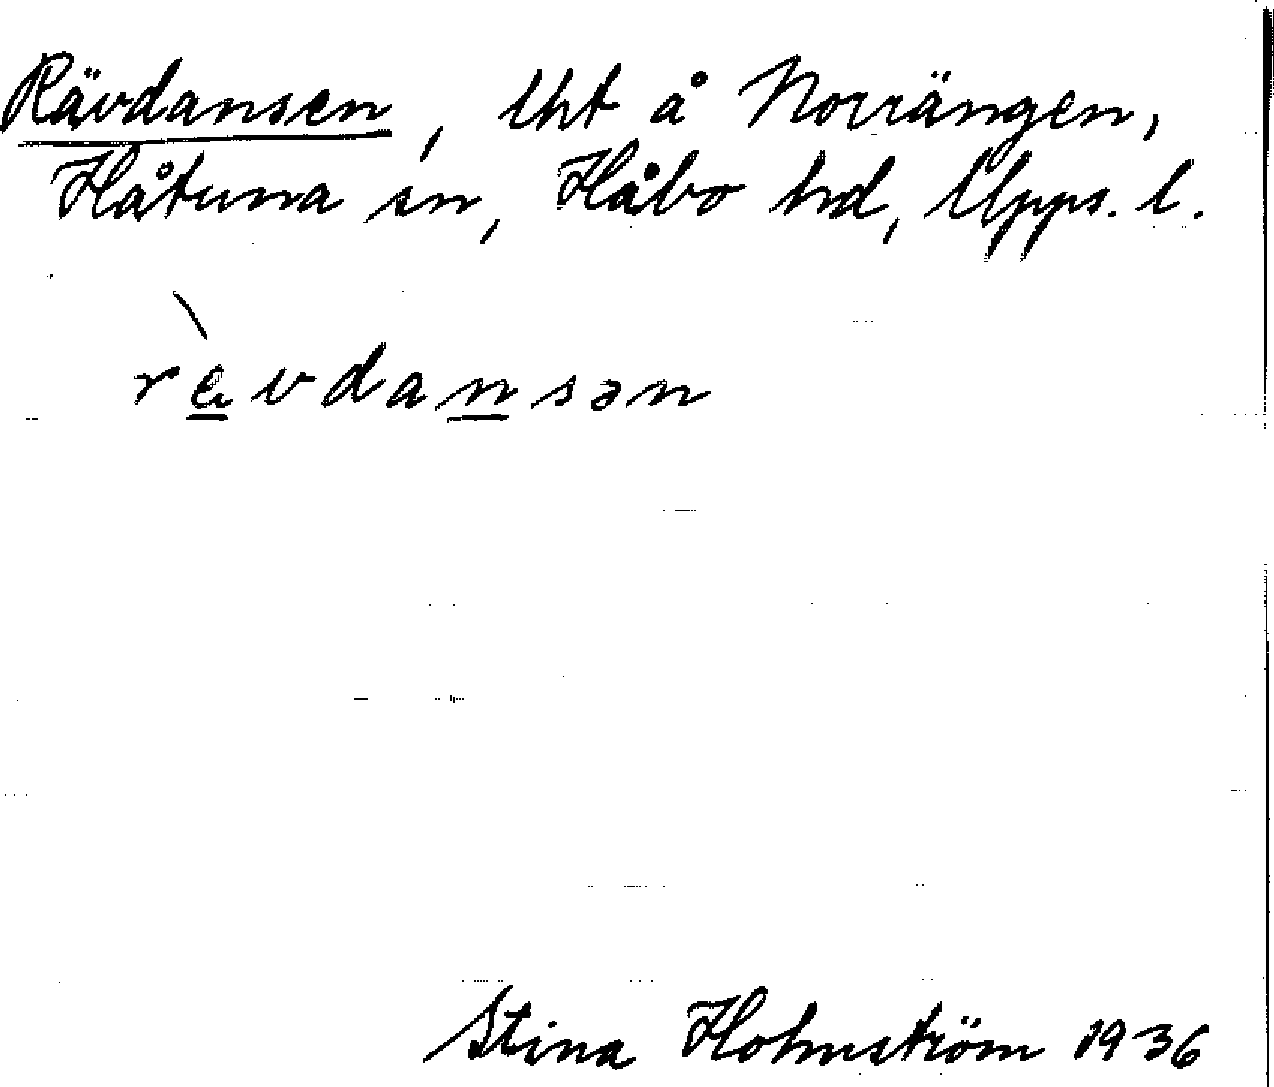 Rävdansen, lht å Norrängen,
Håtuna sn, Håbo hd, Upps. l.
rὲvdansən
Stina Holmström 1936